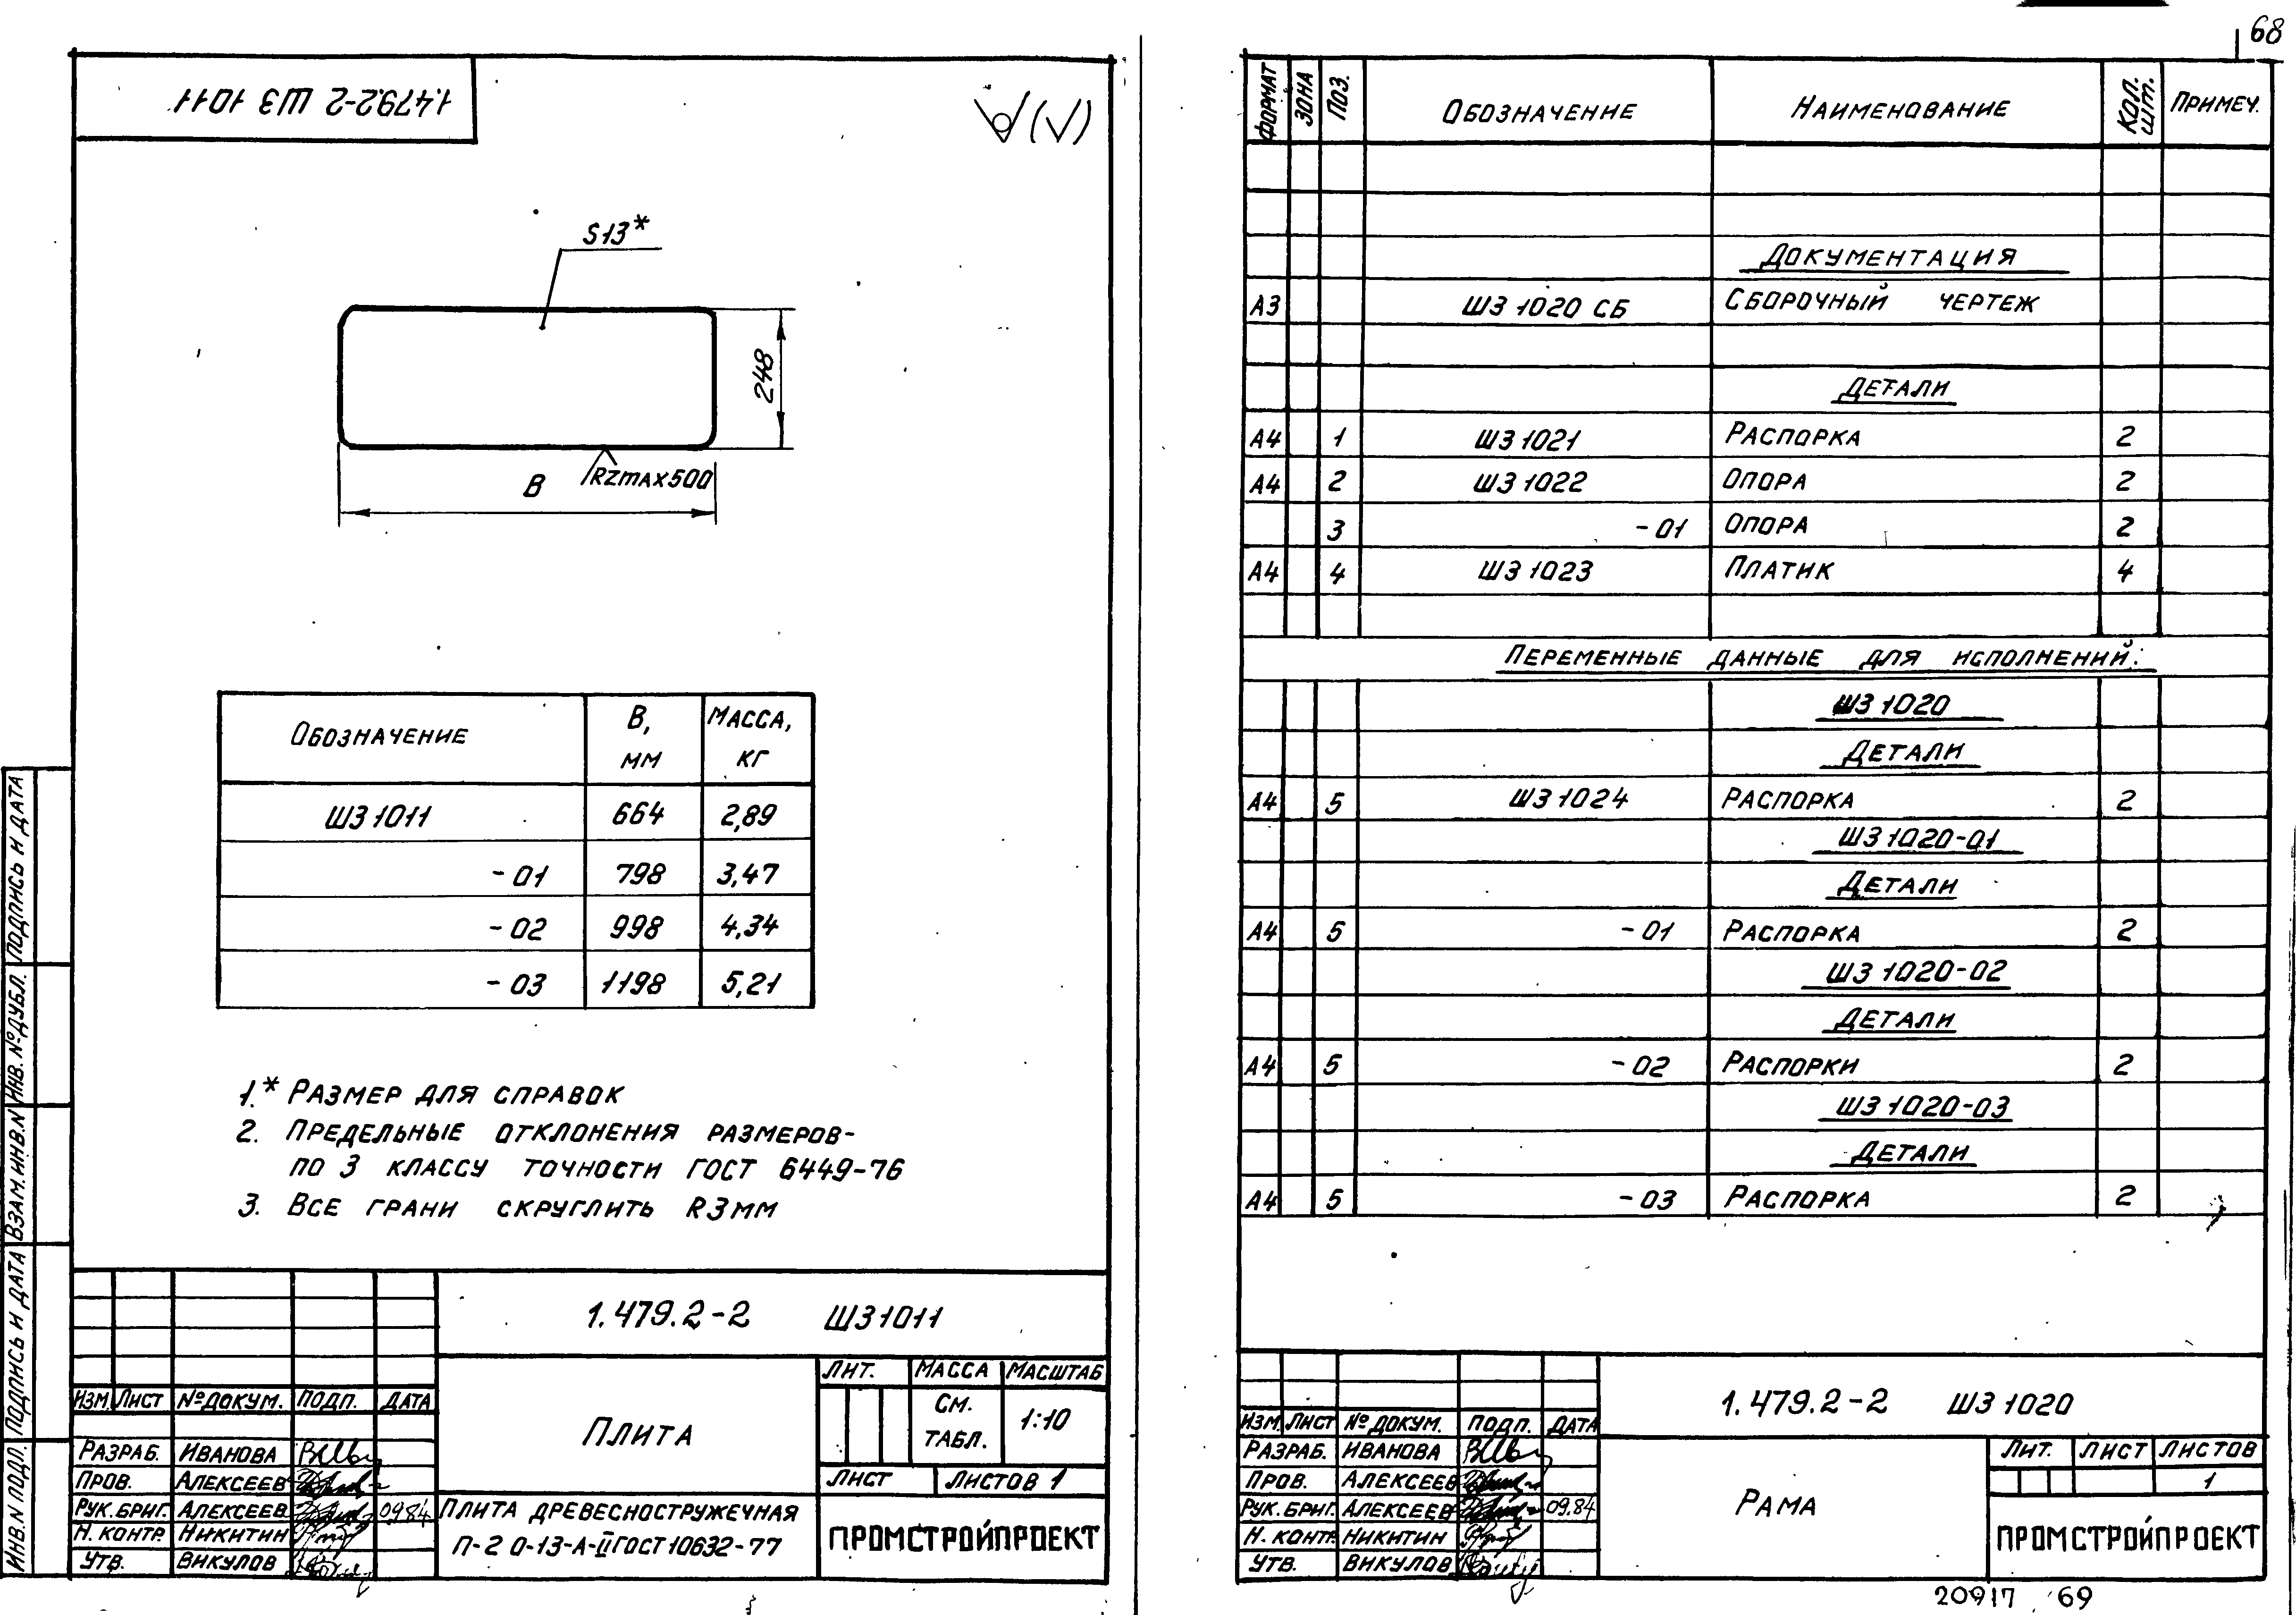 68
1.479.2-2 ШЗ 1011
√(√)
S13*
248
Rzmax500
В
Обозначение | В, мм | Масса, кг
ШЗ 1011 | 664 | 2,89
-01 | 798 | 3,47
-02 | 998 | 4,34
-03 | 1198 | 5,21
1.* Размер для справок
2. Предельные отклонения размеров-
по 3 классу точности ГОСТ 6449-76
3. Все грани скруглить R3мм
Инв. N подл. Подпись и дата Взам. инв. N Инв. № дубл. Подпись и дата
1.479.2-2 ШЗ 1011
Изм. Лист № докум. Подп. Дата
Разраб. Иванова
Пров. Алексеев
Рук. бриг. Алексеев 09.84
Н. контр. Никитин
Утв. Викулов
Плита
Лит. Масса Масштаб
См. табл. 1:10
Лист Листов 1
Плита древесностружечная
П-2 О-13-А-II ГОСТ 10632-77
ПРОМСТРОЙПРОЕКТ
Формат | Зона | Поз. | Обозначение | Наименование | Кол. шт. | Примеч.
Документация
А3 ШЗ 1020 СБ Сборочный чертеж
Детали
А4 1 ШЗ 1021 Распорка 2
А4 2 ШЗ 1022 Опора 2
3 -01 Опора 2
А4 4 ШЗ 1023 Платик 4
Переменные данные для исполнений:
ШЗ 1020
Детали
А4 5 ШЗ 1024 Распорка 2
ШЗ 1020-01
Детали
А4 5 -01 Распорка 2
ШЗ 1020-02
Детали
А4 5 -02 Распорки 2
ШЗ 1020-03
Детали
А4 5 -03 Распорка 2
1.479.2-2 ШЗ 1020
Изм. Лист № докум. Подп. Дата
Разраб. Иванова
Пров. Алексеев
Рук. бриг. Алексеев 09.84
Н. контр. Никитин
Утв. Викулов
Рама
Лит. Лист Листов
1
ПРОМСТРОЙПРОЕКТ
20917 69